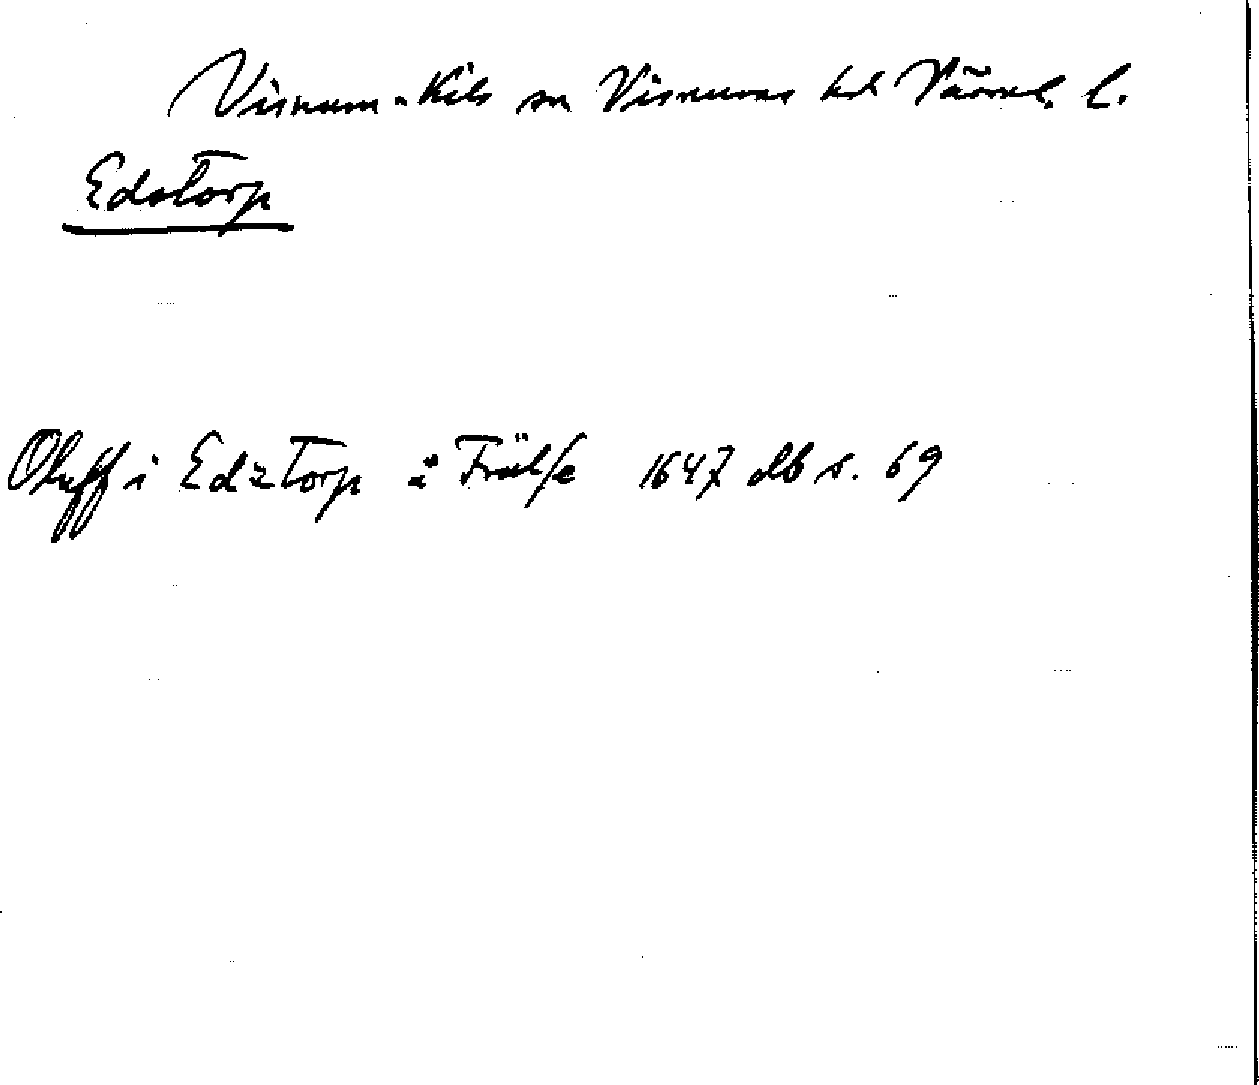 Visnum-Kils sn Visnums hd Värml. l.
Edstorp
Oluff i Edztorp ä Frälse 1647 db s. 69